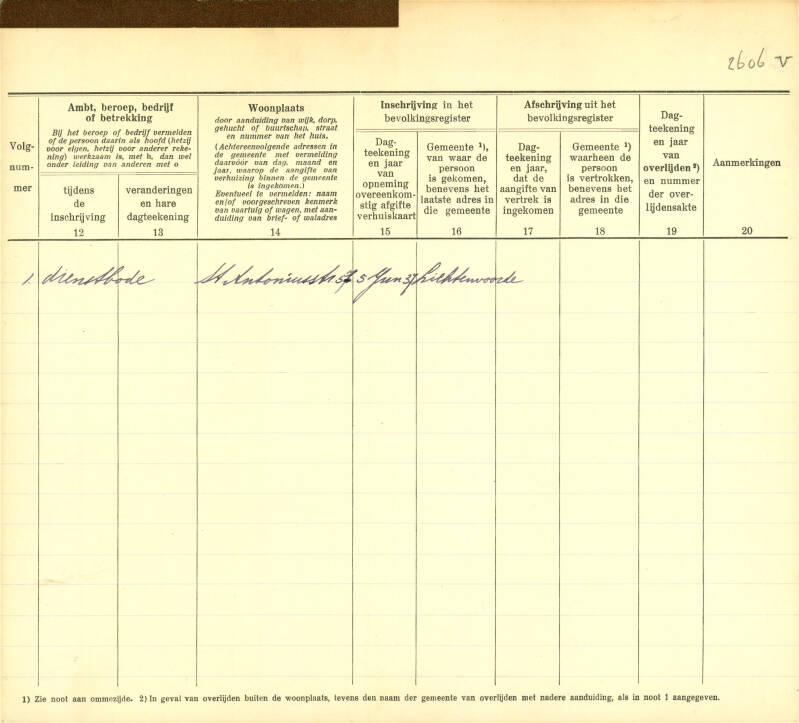 2606 V
Volg-
num-
mer
Ambt, beroep, bedrijf
of betrekking
Bij het beroep of bedrijf vermelden
of de persoon daarin als hoofd (hetzij
voor eigen, hetzij voor anderer reke-
ning) werkzaam is, met h, dan wel
onder leiding van anderen met o
tijdens
de
inschrijving
12
veranderingen
en hare
dagteekening
13
Woonplaats
door aanduiding van wijk, dorp,
gehucht of buurtschap, straat
en nummer van het huis.
(Achtereenvolgende adressen in
de gemeente met vermelding
daarvóór van dag, maand en
jaar, waarop de aangifte van
verhuizing binnen de gemeente
is ingekomen.)
Eventueel te vermelden: naam
en/of voorgeschreven kenmerk
van vaartuig of wagen, met aan-
duiding van brief- of waladres
14
Inschrijving in het
bevolkingsregister
Dag-
teekening
en jaar
van
opneming
overeenkom-
stig afgifte
verhuiskaart
15
Gemeente 1),
van waar de
persoon
is gekomen,
benevens het
laatste adres in
die gemeente
16
Afschrijving uit het
bevolkingsregister
Dag-
teekening
en jaar,
dat de
aangifte van
vertrek is
ingekomen
17
Gemeente 1)
waarheen de
persoon
is vertrokken,
benevens het
adres in die
gemeente
18
Dag-
teekening
en jaar
van
overlijden 2)
en nummer
der over-
lijdensakte
19
Aanmerkingen
20
1. dienstbode St Antoniusstr. 57 5 Jun 37 Lichtenvoorde
1) Zie noot aan ommezijde. 2) In geval van overlijden buiten de woonplaats, tevens den naam der gemeente van overlijden met nadere aanduiding, als in noot 1 aangegeven.